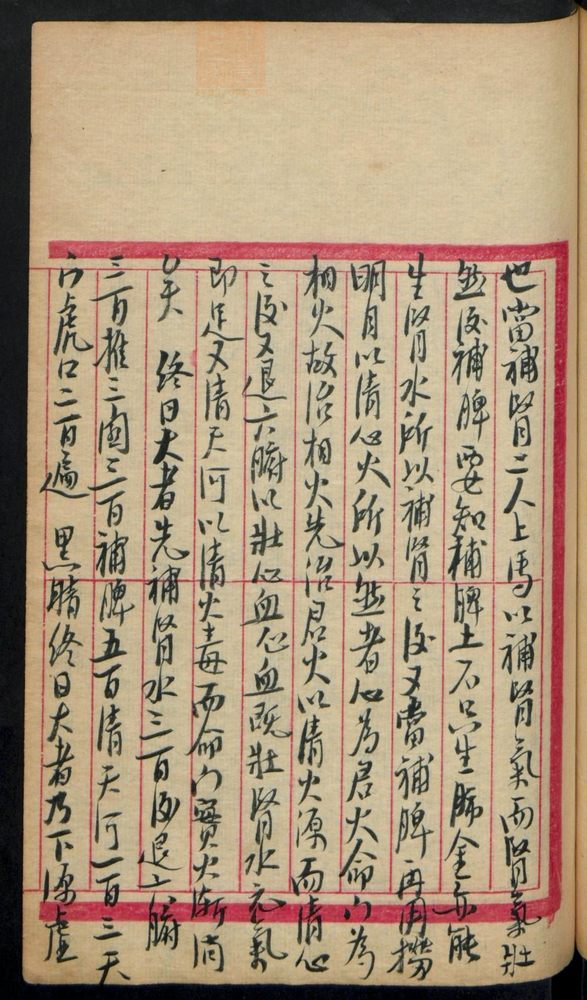 也當補腎二人上馬以補腎氣而腎氣壯
然後補脾要知補脾土不只生肺金亦能
生腎水所以補腎之後又當補脾再用撈
明月以清心火所以然者心為君火命门為
相火故治相火先治君火以清火源而清心
之後又退六腑以壯心血心血既壯腎水元氣
即足又清天河以清火毒而命门實火漸消
矣 終日大者先補腎水三百後退六腑
三百推三関三百補脾五百清天河一百三天
门虎口二百遍 黑睛終日大者乃下源虛